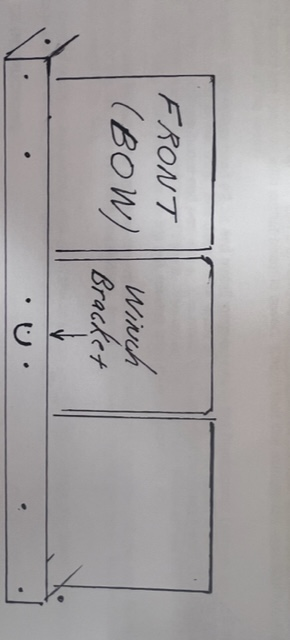 FRONT
(BOW)
Winch
Bracket